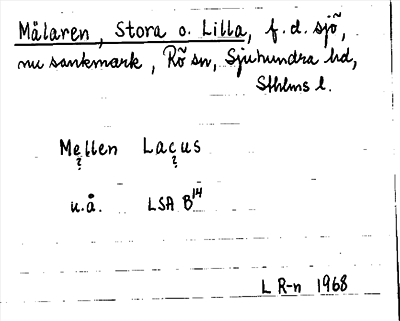 Målaren, Stora o. Lilla, f. d. sjö,
nu sankmark, Rö sn, Sjuhundra hd,
Sthlms l.
Mellen Lacus
? ?
u.å. LSA B14
L R-n 1968